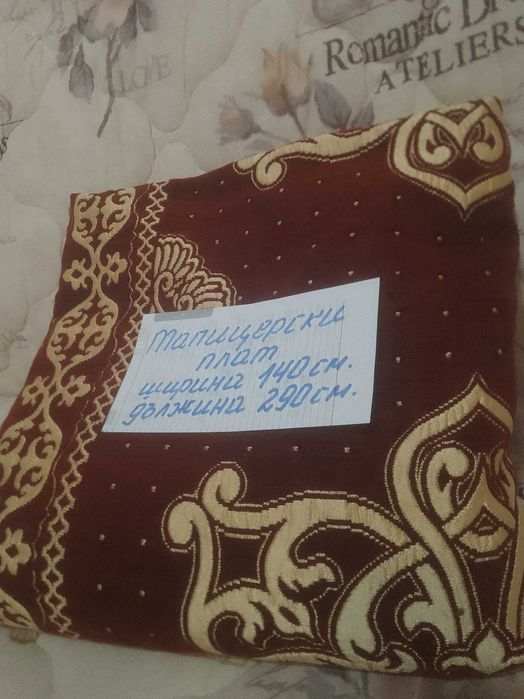 LOVE
Romantic
ATELIERS
Тапицерски
плат
ширина 140 см.
дължина 290 см.